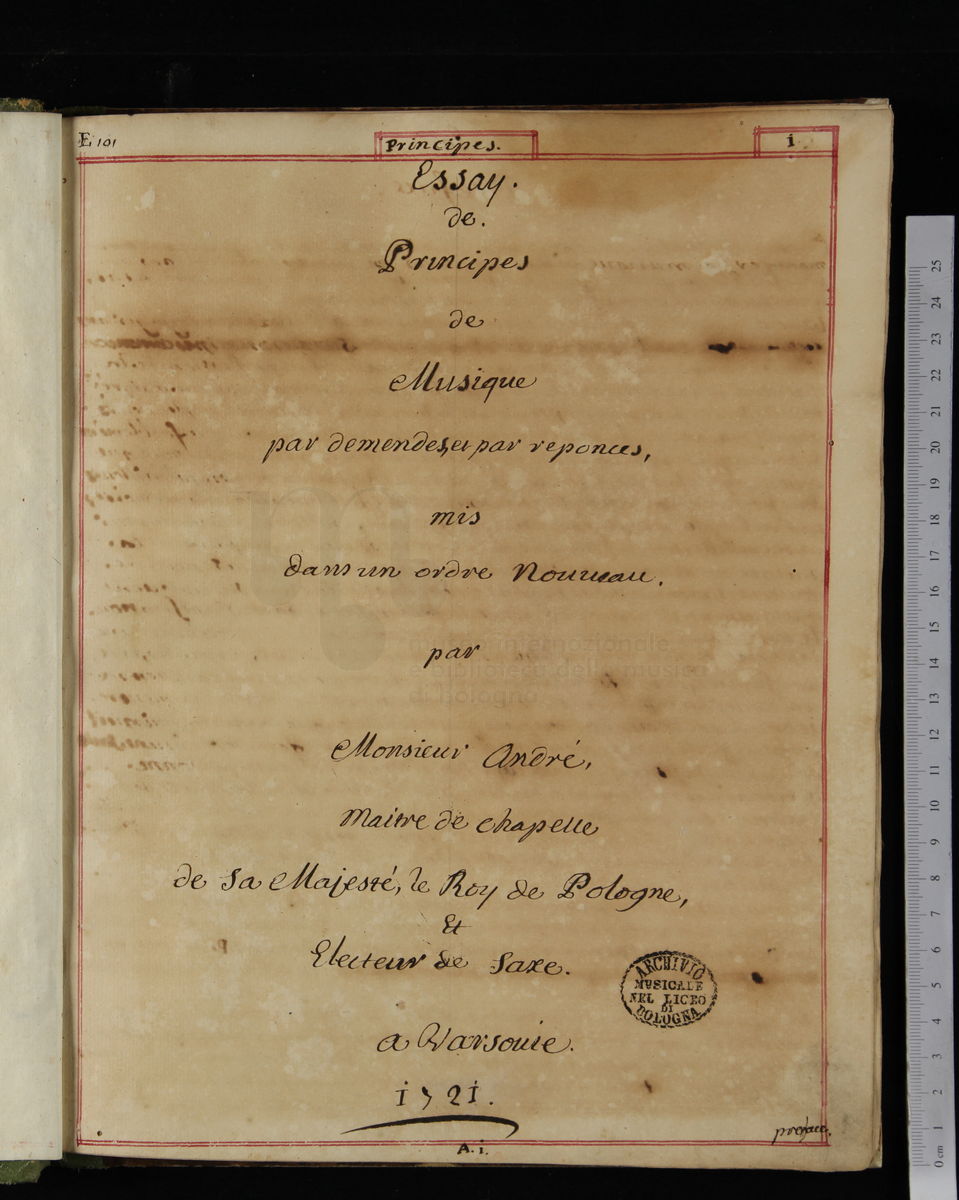 E 101
Principes.
1
Essay.
de.
Principes
de
Musique
par demendes, et par reponces,
mis
dans un ordre Nouveau.
par
Monsieur André,
Maitre de chapelle
de Sa Majesté, le Roy de Pologne,
Et
Electeur de Saxe.
a Varsouie.
1721.
A. i.
preface.
ARCHIVIO
MUSICALE
NEL LICEO
DI
BOLOGNA
museo internazionale
e biblioteca della musica
di bologna
0 cm 1 2 3 4 5 6 7 8 9 10 11 12 13 14 15 16 17 18 19 20 21 22 23 24 25